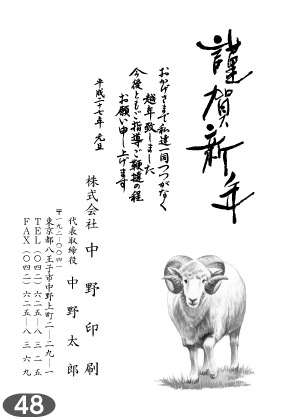 謹賀新年
おかげさまで私達一同つつがなく
越年致しました
今後ともご指導ご鞭撻の程
お願い申し上げます
平成二十七年 元旦
株式会社 中野印刷
代表取締役 中野太郎
〒一九二-〇〇四一
東京都八王子市中野上町二-二九-一
TEL(〇四二)六二五-八三二五
FAX(〇四二)六二五-八三六九
48